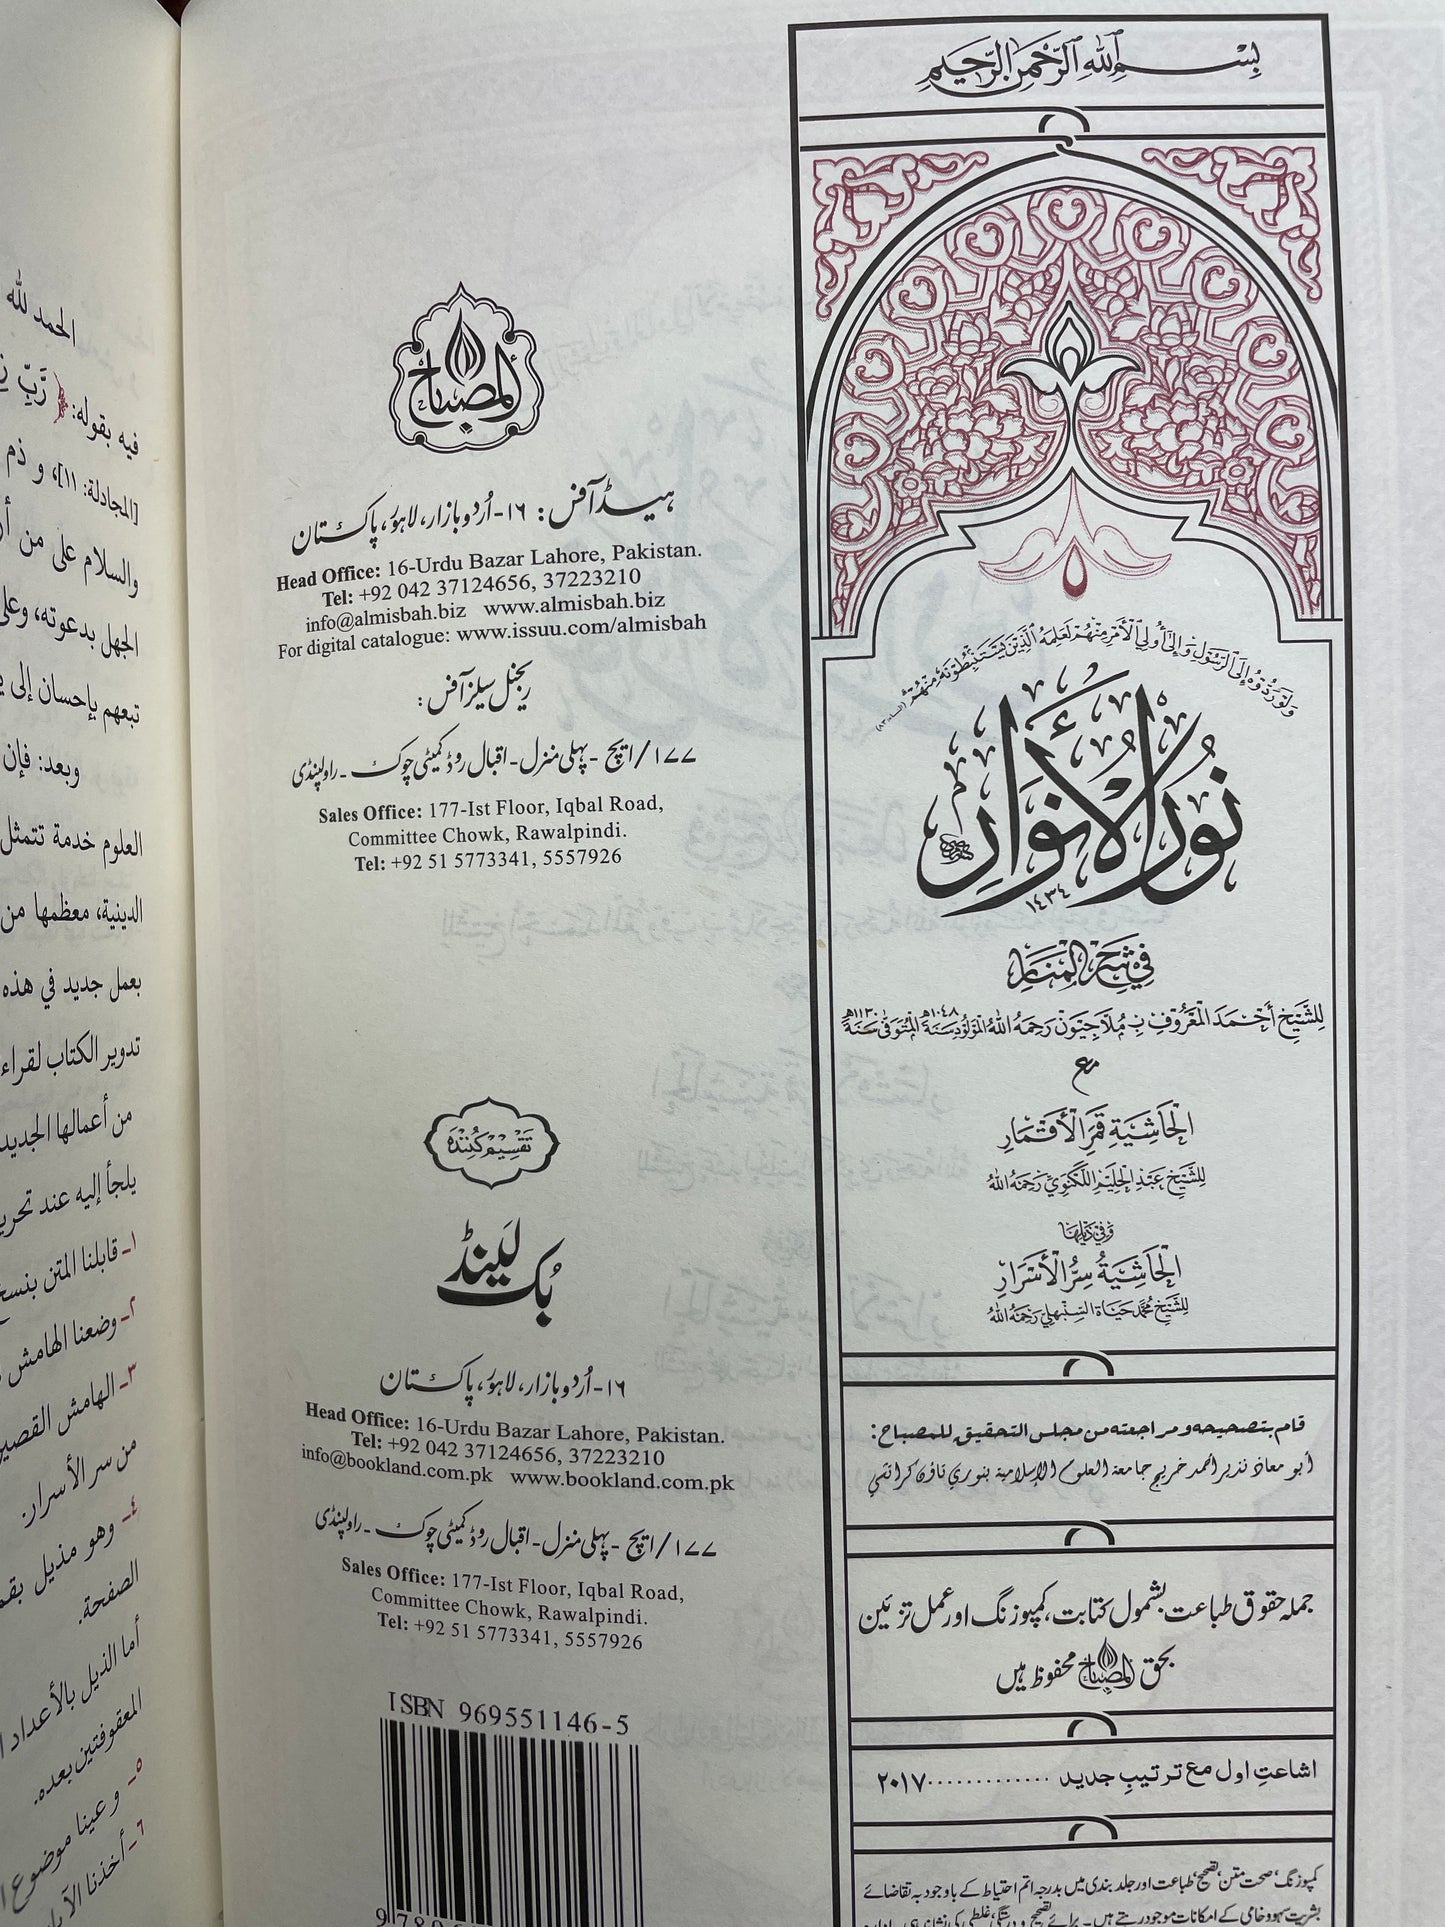 بِسْمِ اللهِ الرَّحْمٰنِ الرَّحِيْمِ
وَلَوْ رَدُّوْهُ إِلَى الرَّسُوْلِ وَإِلٰى أُولِي الْأَمْرِ مِنْهُمْ لَعَلِمَهُ الَّذِيْنَ يَسْتَنْبِطُوْنَهٗ مِنْهُمْ (النساء: ٨٣)
نُوْرُ الْأَنْوَارِ
١٤٣٤
فِيْ شَرْحِ الْمَنَارِ
لِلشَّيْخِ أَحْمَدَ الْمَعْرُوْفِ بِـ مُلَّاجِيْوَن رَحِمَهُ اللهُ الْمَوْلُوْدِ سَنَةَ ١٠٤٨هـ الْمُتَوَفّٰى سَنَةَ ١١٣٠هـ
مع
الْحَاشِيَةِ قَمَرِ الْأَقْمَارِ
لِلشَّيْخِ عَبْدِ الْحَلِيْمِ اللَّكْنَوِيِّ رَحِمَهُ اللهُ
وَفِيْ ذَيْلِهَا
الْحَاشِيَةُ سِرُّ الْأَسْرَارِ
لِلشَّيْخِ مُحَمَّد حَيَاة السَّنْبَهْلِي رَحِمَهُ اللهُ
قام بتصحيحه ومراجعته من مجلس التحقيق للمصباح:
أبو معاذ نذير أحمد خريج جامعة العلوم الإسلامية بنوري تاؤن كراتشي
جملہ حقوق طباعت بشمول کتابت، کمپوزنگ اور عمل تزئین
بحق المصباح محفوظ ہیں
اشاعتِ اول مع ترتیبِ جدید ............. ۲۰۱۷
کمپوزنگ، صحت متن، تصحیح، طباعت اور جلد بندی میں بدرجہ اتم احتیاط کے باوجود بہ تقاضائے
بشریت سہو و خامی کے امکانات موجود رہتے ہیں۔ برائے تصحیح و درستگی غلطی کی نشاندہی
المصباح
ہیڈ آفس: ۱۶-اُردو بازار، لاہور، پاکستان
Head Office: 16-Urdu Bazar Lahore, Pakistan.
Tel: +92 042 37124656, 37223210
info@almisbah.biz www.almisbah.biz
For digital catalogue: www.issuu.com/almisbah
ریجنل سیلز آفس:
۱۷۷/ایچ - پہلی منزل - اقبال روڈ کمیٹی چوک - راولپنڈی
Sales Office: 177-Ist Floor, Iqbal Road,
Committee Chowk, Rawalpindi.
Tel: +92 51 5773341, 5557926
تَقْسِيْم كُنِنْدَه
بُک لَینڈ
۱۶-اُردو بازار، لاہور، پاکستان
Head Office: 16-Urdu Bazar Lahore, Pakistan.
Tel: +92 042 37124656, 37223210
info@bookland.com.pk www.bookland.com.pk
۱۷۷/ایچ - پہلی منزل - اقبال روڈ کمیٹی چوک - راولپنڈی
Sales Office: 177-Ist Floor, Iqbal Road,
Committee Chowk, Rawalpindi.
Tel: +92 51 5773341, 5557926
ISBN 969551146-5
الحمد لله
فيه بقوله: ﴿رَّبِّ
[المجادلة: ١١]، و ذم
والسلام على من
الجهل بدعوته، وعلى
تبعهم بإحسان إلى
وبعد: فإن
العلوم خدمة تتمثل
الدينية، معظمها من
بعمل جديد في هذه
تدوير الكتاب
من أعمالها
يلجأ إليه عند
١- قابلنا المتن
٢- وضعنا الهامش
٣- الهامش
من سر الأسرار.
٤- وهو مذيل
الصفحة.
أما الذيل بالأعداد
المعقوفتين بعده.
٥- وعينا موضوع
٦- أخذنا